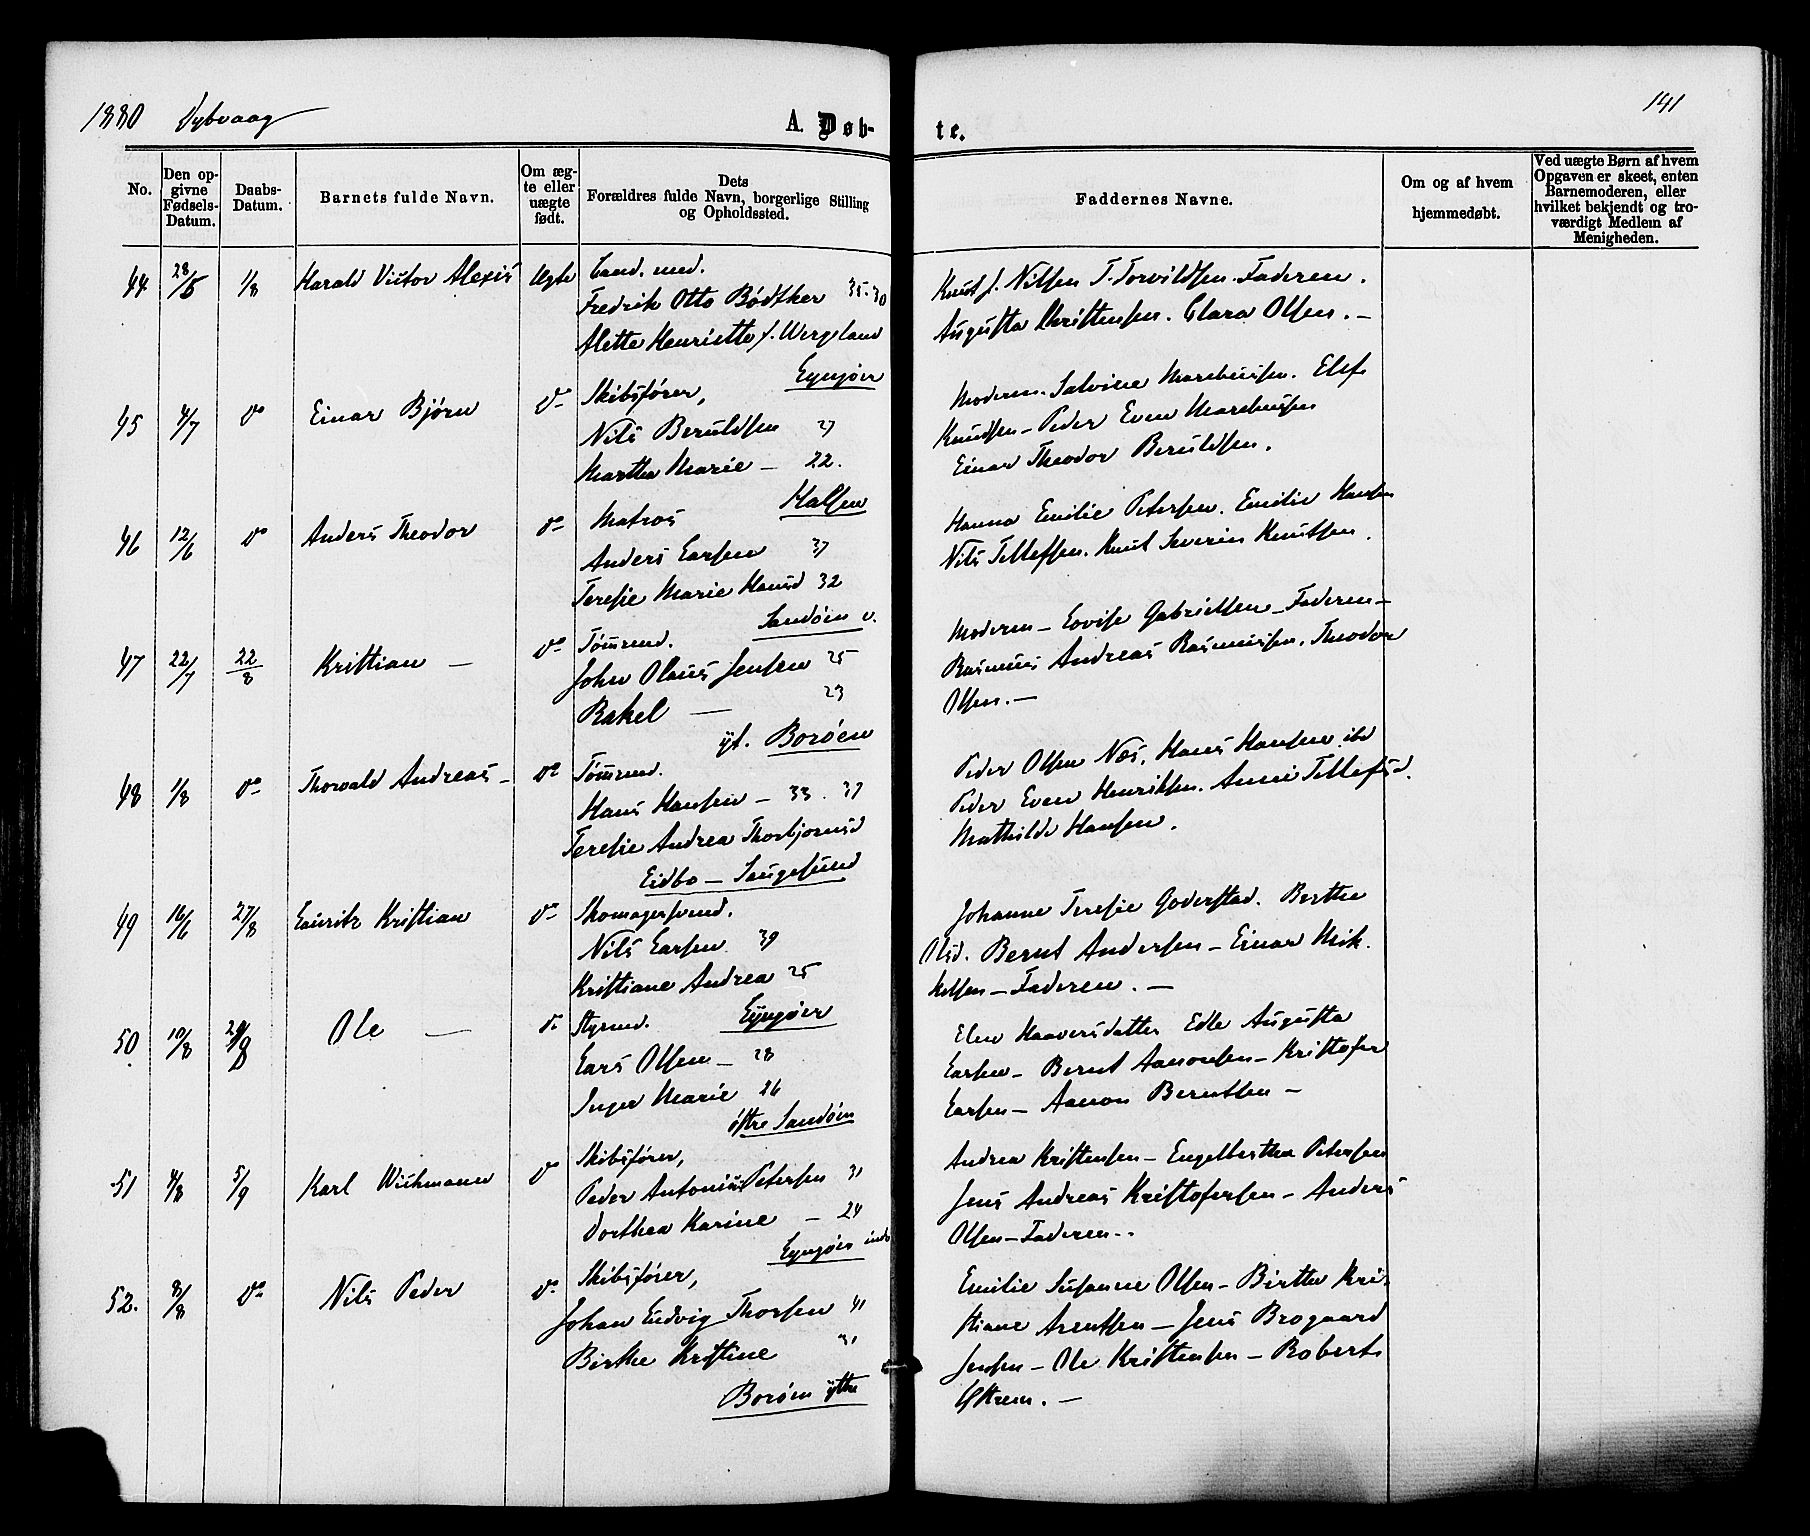 1880 Dybvaag A. Døb- te. 141
No. Den op-givne Fødsels-Datum. Daabs-Datum. Barnets fulde Navn. Om æg-te eller uægte født. Dets Forældres fulde Navn, borgerlige Stilling og Opholdssted. Faddernes Navne. Om og af hvem hjemmedøbt. Ved uægte Børn af hvem Opgaven er skeet, enten Barnemoderen, eller hvilket bekjendt og tro-værdigt Medlem af Menigheden.
44 28/5 1/8 Harald Victor Alexis Ægte Cand. med.
Fredrik Otto Bødtker 35.30 Knut J. Nilsen T. Torvildsen. Faderen.
Alette Henriette f. Wergeland Augusta Christensen. Clara Olsen. —
Lyngøer
45 4/7 do Einar Bjørn do Skibsfører, Moderen. Salvine Marcussen. Elef
Nils Beruldsen 27 Knudsen — Peder Even Marcussen
Marthe Marie — 22. Einar Theodor Beruldsen.
Halsen
46 12/6 do Anders Theodor do Matros Hanna Emilie Petersen. Emilie Hansen
Anders Larsen 37 Nils Tellefsen. Knut Severin Knutsen.
Teresie Marie Hansd 32
Sandøen v.
47 22/7 22/8 Kristian — do Tømmd. Moderen — Lovise Gabrielsen — Faderen —
John Olaus Jensen 25 Rasmus Andreas Rasmussen. Theodor
Rakel — 23 Olsen. —
yt. Borøen
48 1/8 do Thorvald Andreas — do Tømmd. Peder Olsen Næs. Hans Hansen ibd
Hans Hansen — 33. 37 Peder Even Henriksen. Anne Tellefsd.
Teresie Andrea Thorbjørnsd Mathilde Hansen.
Eidbo — Saugesund
49 16/6 27/8 Lauritz Kristian do Skomagersvend. Johanne Teresie Goderstad. Berthe
Nils Larsen 39 Olsd. Bernt Andersen — Einar Mik-
Kristiane Andrea 25 kelsen — Faderen. —
Lyngøer
50 10/8 29/8 Ole — do Styrmd. Elen Haaversdatter Edle Augusta
Lars Olsen — 28 Larsen — Bernt Aanonsen — Kristofer
Inger Marie 26 Larsen — Aanon Berntsen —
østre Sandøen
51 4/8 5/9 Karl Wichmann do Skibsfører, Andrea Kristensen — Engelberthea Petersen
Peder Antonius Petersen 31 Jens Andreas Kristofersen — Anders
Dorthea Karine — 24 Olsen — Faderen. —
Lyngøer indr
52. 8/8 do Nils Peder do Skibsfører, Emilie Susanne Olsen — Birthe Kri-
Johan Ludvig Thorsen 41 stiane Arentsen — Jens Brogaard
Birthe Kristine 31 Jensen — Ole Kristensen — Robert
Borøen ytre